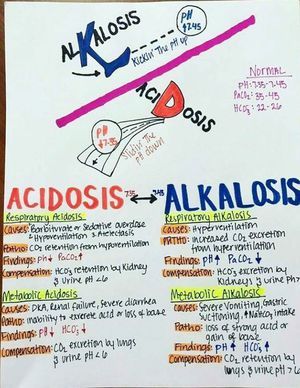 ALKALOSIS
Kickin' the pH up
pH
↑7.45
NORMAL
pH: 7.35-7.45
PaCO₂: 35-45
HCO₃⁻: 22-26
ACIDOSIS
pH
↓7.35
Slidin' the
pH down
ACIDOSIS 7.35 ↔ 7.45 ALKALOSIS
Respiratory Acidosis
Causes: Barbiturate or Sedative overdose
Hypoventilation & Atelectasis
Patho: CO₂ retention from hypoventilation
Findings: pH ↓ PaCO₂ ↑
Compensation: HCO₃ retention by Kidney
& Urine pH <6
Metabolic Acidosis
Causes: DKA, Renal Failure, Severe diarrhea
Patho: inability to excrete acid or loss of base
Findings: pH ↓ HCO₃ ↓
Compensation: CO₂ excretion by lungs
& urine pH <6
Respiratory Alkalosis
Causes: Hyperventilation
PATHO: increased CO₂ excretion
from hyperventilation
Findings: pH ↑ PaCO₂ ↓
Compensation: HCO₃ excretion by
Kidneys & Urine pH >
Metabolic Alkalosis
Causes: Severe Vomiting, Gastric
Suctioning, ↑ NaHCO₃ intake
Patho: loss of strong acid or
gain of base
Findings: pH ↑ HCO₃ ↑
Compensation: CO₂ retention by
lungs & urine pH >6